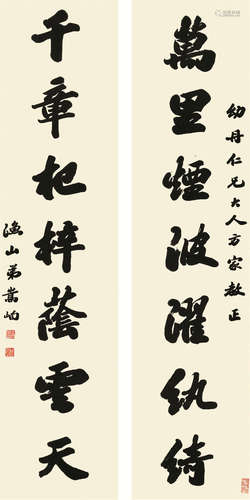 幼丹仁兄大人方家教正
萬里煙波濯紈綺
千章杞梓蔭雲天
漁山弟嵩岣